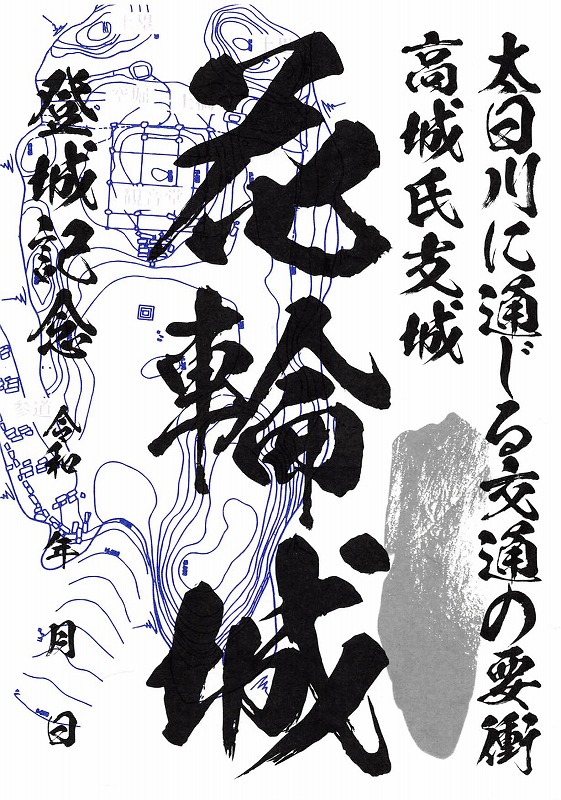 太日川に通じる交通の要衝
高城氏支城
花輪城
登城記念
令和 年 月 日
土塁
空堀
観音堂
参道